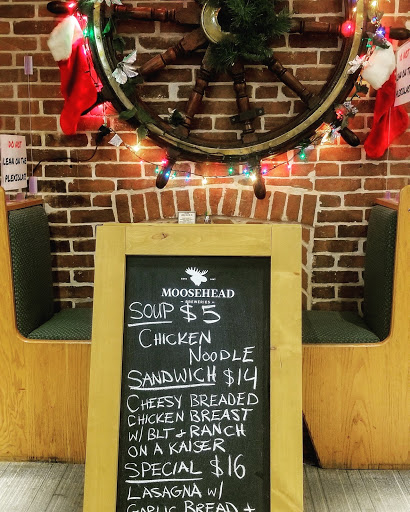 DO NOT
LEAN ON THE
PLEXIGLASS
MOOSEHEAD
BREWERIES
SOUP $5
CHICKEN
NOODLE
SANDWICH $14
CHEESY BREADED
CHICKEN BREAST
W/ BLT & RANCH
ON A KAISER
SPECIAL $16
LASAGNA W/
GARLIC BREAD +